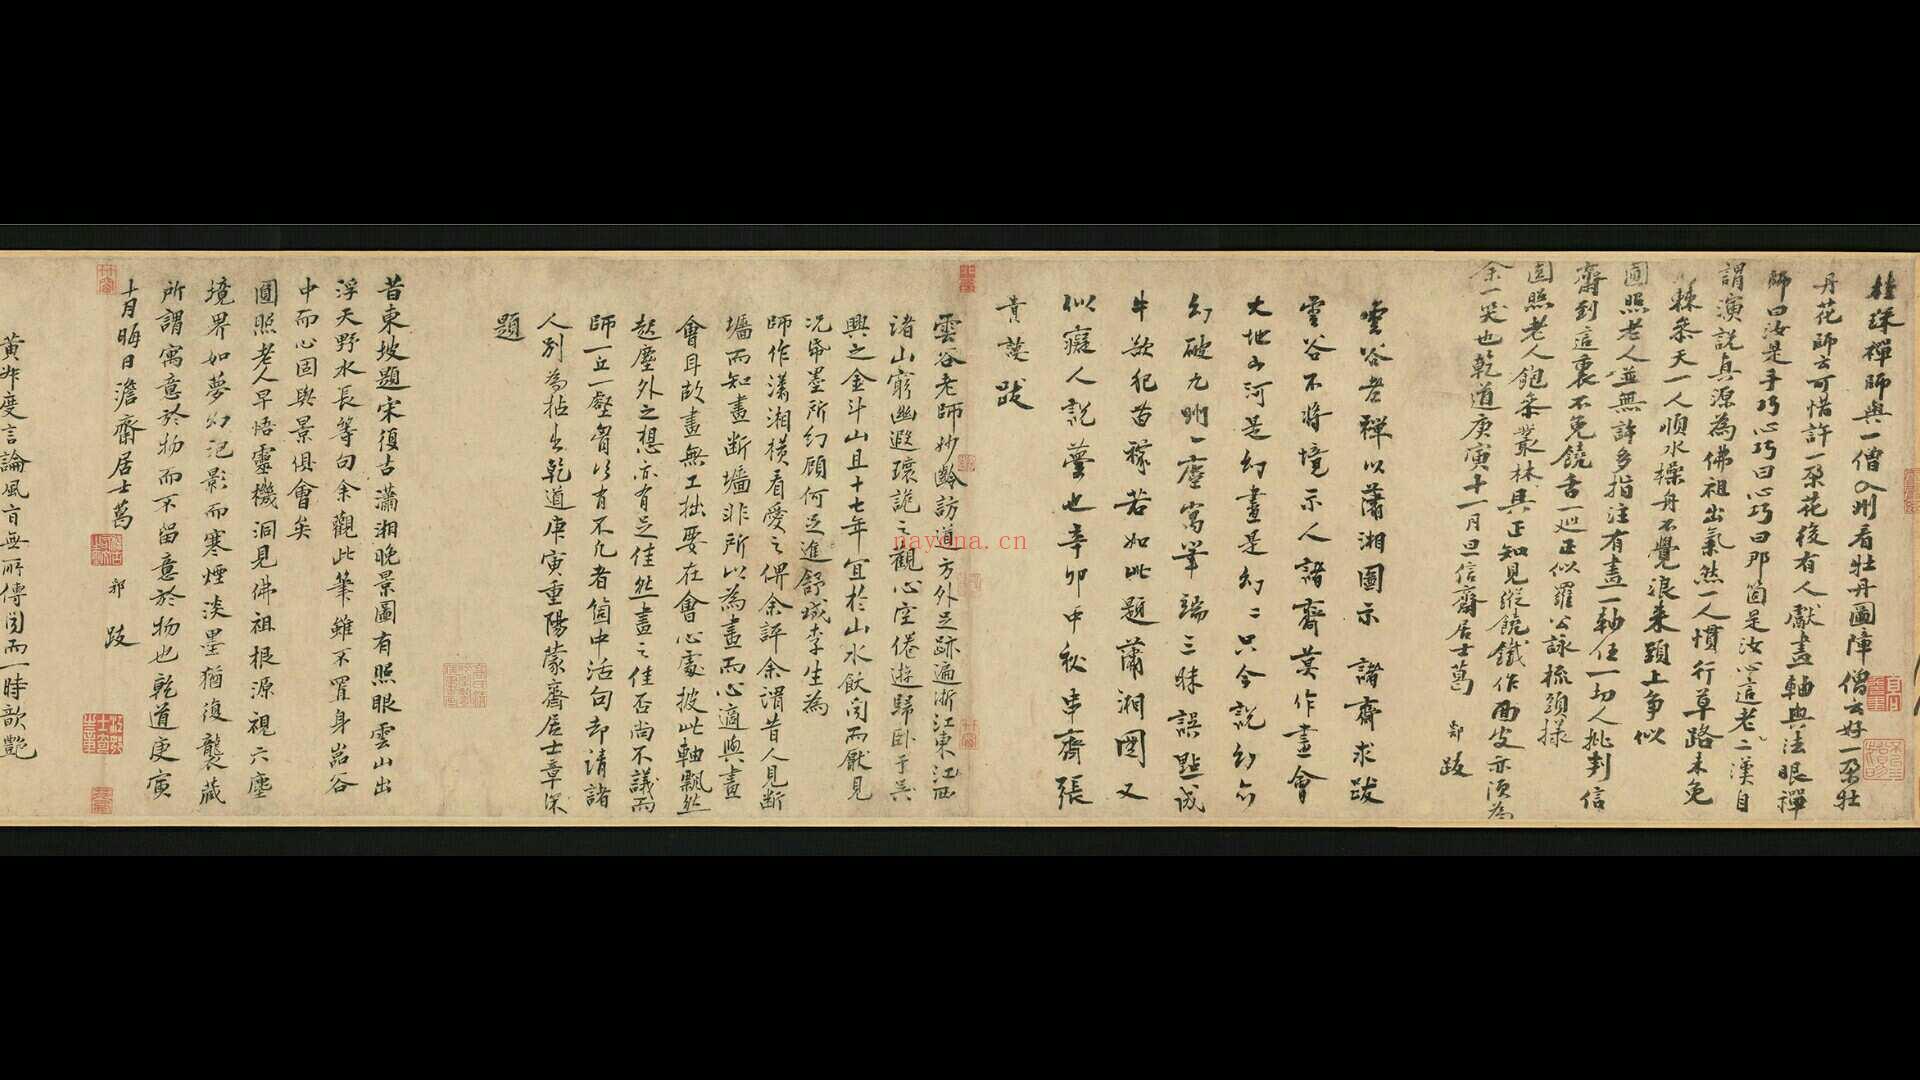 桂琛禪師與一僧入州看牡丹圖障僧云好一朵牡
丹花師云可惜許一朵花後有人獻畫軸與法眼禪
師曰汝是手巧心巧曰心巧曰那箇是汝心這老二漢自
謂演說真源為佛祖出氣然一人慣行草路未免
棘參天一人順水操舟不覺浪來頭上爭似
圓照老人並無許多指注有畫一軸任一切人批判信
齋到這裏不免饒舌一巡正似羅公詠梳頭樣
圓照老人飽參叢林具正知見縱饒鐵作面皮亦須為
余一笑也乾道庚寅十一月旦信齋居士葛
郯 跋
雲谷老禪以瀟湘圖示 諸齋求跋
雲谷不將境示人諸齋莫作畫會
大地山河是幻畫是幻二只今說幻亦
幻破九州一塵寓筆端三昧誤點成
牛欲犯苗稼若如此題瀟湘圖又
似癡人說夢也辛卯中秋串齋張
貴謨 跋
雲谷老師妙齡訪道方外足跡遍浙江東江西
諸山窮幽遐瓌詭之觀心空倦遊歸臥于吳
興之金斗山且十七年宜於山水飫聞而厭見
況帋墨所幻顧何足進舒城李生為
師作瀟湘橫看愛之俾余評余謂昔人見斷
墻而知畫斷墻非所以為畫而心適與畫
會耳故畫無工拙要在會心處披此軸飄然
起塵外之想亦有足佳然畫之佳否尚不議而
師一丘一壑胷次有不凡者箇中活句却請諸
人別為拈出乾道庚寅重陽蒙齋居士章深
題
昔東坡題宋復古瀟湘晚景圖有照眼雲山出
浮天野水長等句余觀此筆雖不置身嵓谷
中而心固與景俱會矣
圓照老人早悟靈機洞見佛祖根源視六塵
境界如夢幻泡影而寒煙淡墨猶復襲藏
所謂寓意於物而不留意於物也乾道庚寅
十月晦日澹齋居士葛
郯 跋
黃 度言論風 無所傳 而一時歆艷
nayona.cn